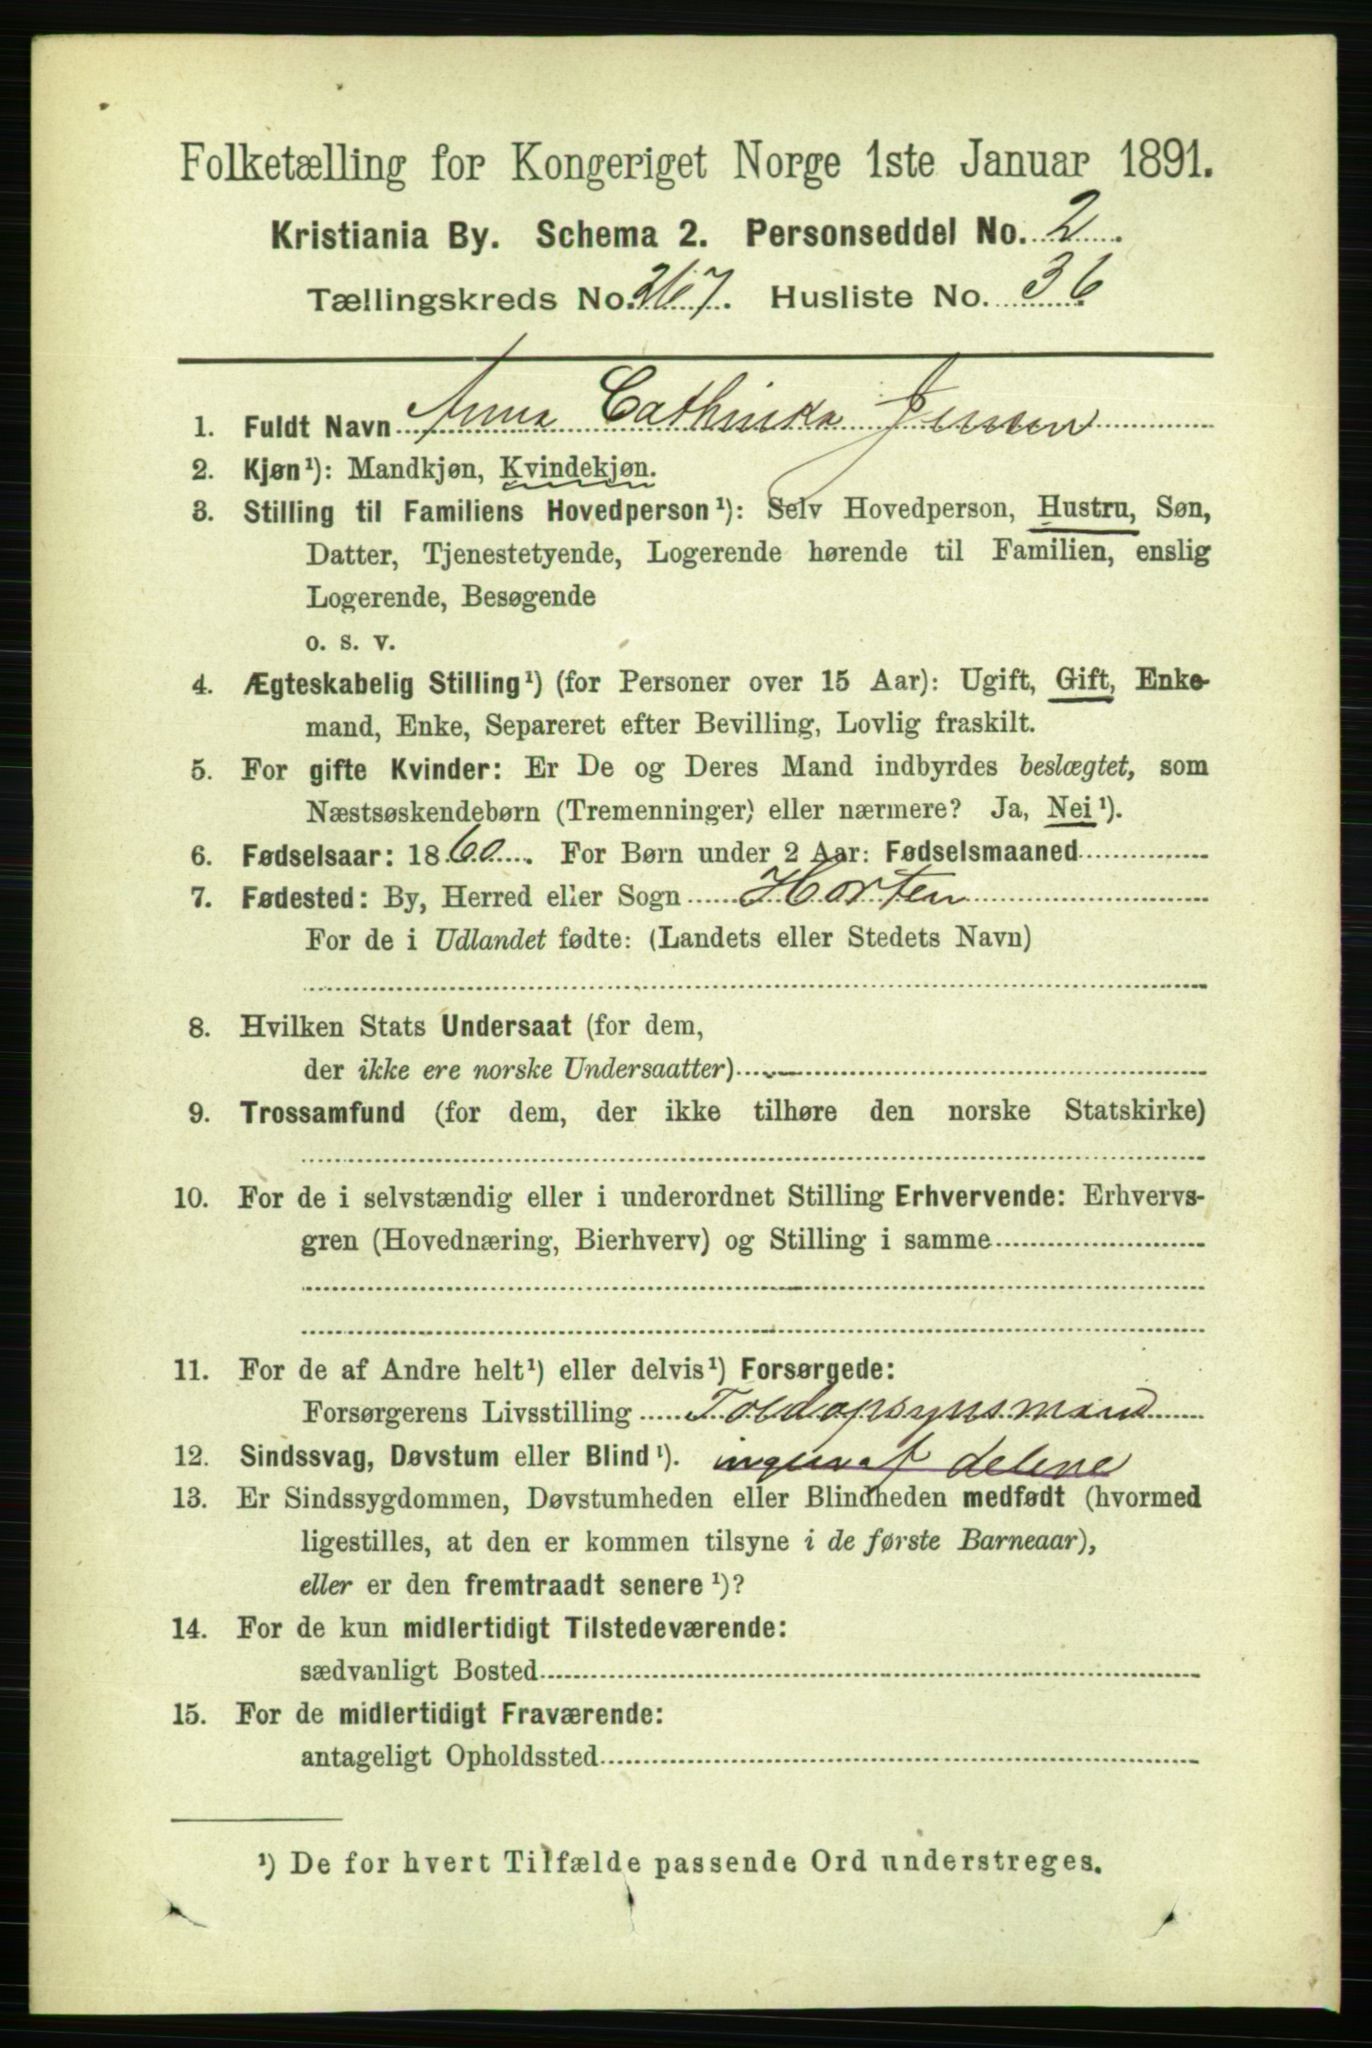 Folketælling for Kongeriget Norge 1ste Januar 1891.
Kristiania By. Schema 2. Personseddel No. 2
Tællingskreds No. 267. Husliste No. 36
1. Fuldt Navn Anna Cathinka Jensen
2. Kjøn¹): Mandkjøn, Kvindekjøn.
3. Stilling til Familiens Hovedperson¹): Selv Hovedperson, Hustru, Søn,
Datter, Tjenestetyende, Logerende hørende til Familien, enslig
Logerende, Besøgende
o. s. v.
4. Ægteskabelig Stilling¹) (for Personer over 15 Aar): Ugift, Gift, Enke-
mand, Enke, Separeret efter Bevilling, Lovlig fraskilt.
5. For gifte Kvinder: Er De og Deres Mand indbyrdes beslægtet, som
Næstsøskendebørn (Tremenninger) eller nærmere? Ja, Nei¹).
6. Fødselsaar: 1860. For Børn under 2 Aar: Fødselsmaaned
7. Fødested: By, Herred eller Sogn Horten
For de i Udlandet fødte: (Landets eller Stedets Navn)
8. Hvilken Stats Undersaat (for dem,
der ikke ere norske Undersaatter)
9. Trossamfund (for dem, der ikke tilhøre den norske Statskirke)
10. For de i selvstændig eller i underordnet Stilling Erhvervende: Erhvervs-
gren (Hovednæring, Bierhverv) og Stilling i samme
11. For de af Andre helt¹) eller delvis¹) Forsørgede:
Forsørgerens Livsstilling Toldopsynsmand
12. Sindssvag, Døvstum eller Blind¹). ingen af delene
13. Er Sindssygdommen, Døvstumheden eller Blindheden medfødt (hvormed
ligestilles, at den er kommen tilsyne i de første Barneaar),
eller er den fremtraadt senere¹)?
14. For de kun midlertidigt Tilstedeværende:
sædvanligt Bosted
15. For de midlertidigt Fraværende:
antageligt Opholdssted
¹) De for hvert Tilfælde passende Ord understreges.